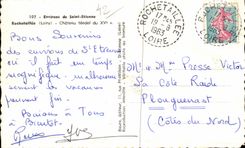 197 - Environs de Saint-Etienne
Rochetaillée (Loire) - Château féodal du XIe s.
Bons Souvenirs
des environs de St Etienne
où il fait un temps
magnifique. malheureu-
sement les vacances
passent vite.
Bonjour à Tous
à Bientôt.
Pierre Yves
ROCHETAILLEE
1963
LOIRE
Mr et Mme Presse Victor
La Côte Raide
Plouguenast
(Côtes du Nord)